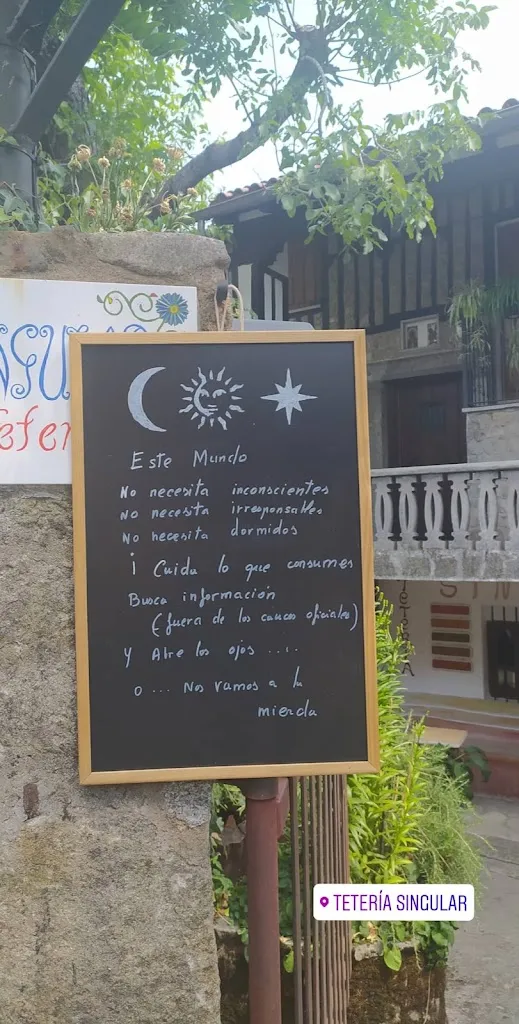 Este Mundo
No necesita inconscientes
No necesita irresponsables
No necesita dormidos
¡ Cuida lo que consumes
Busca información
(fuera de los cauces oficiales)
Y Abre los ojos ....
o ... Nos vamos a la
mierda
TETERÍA SINGULAR